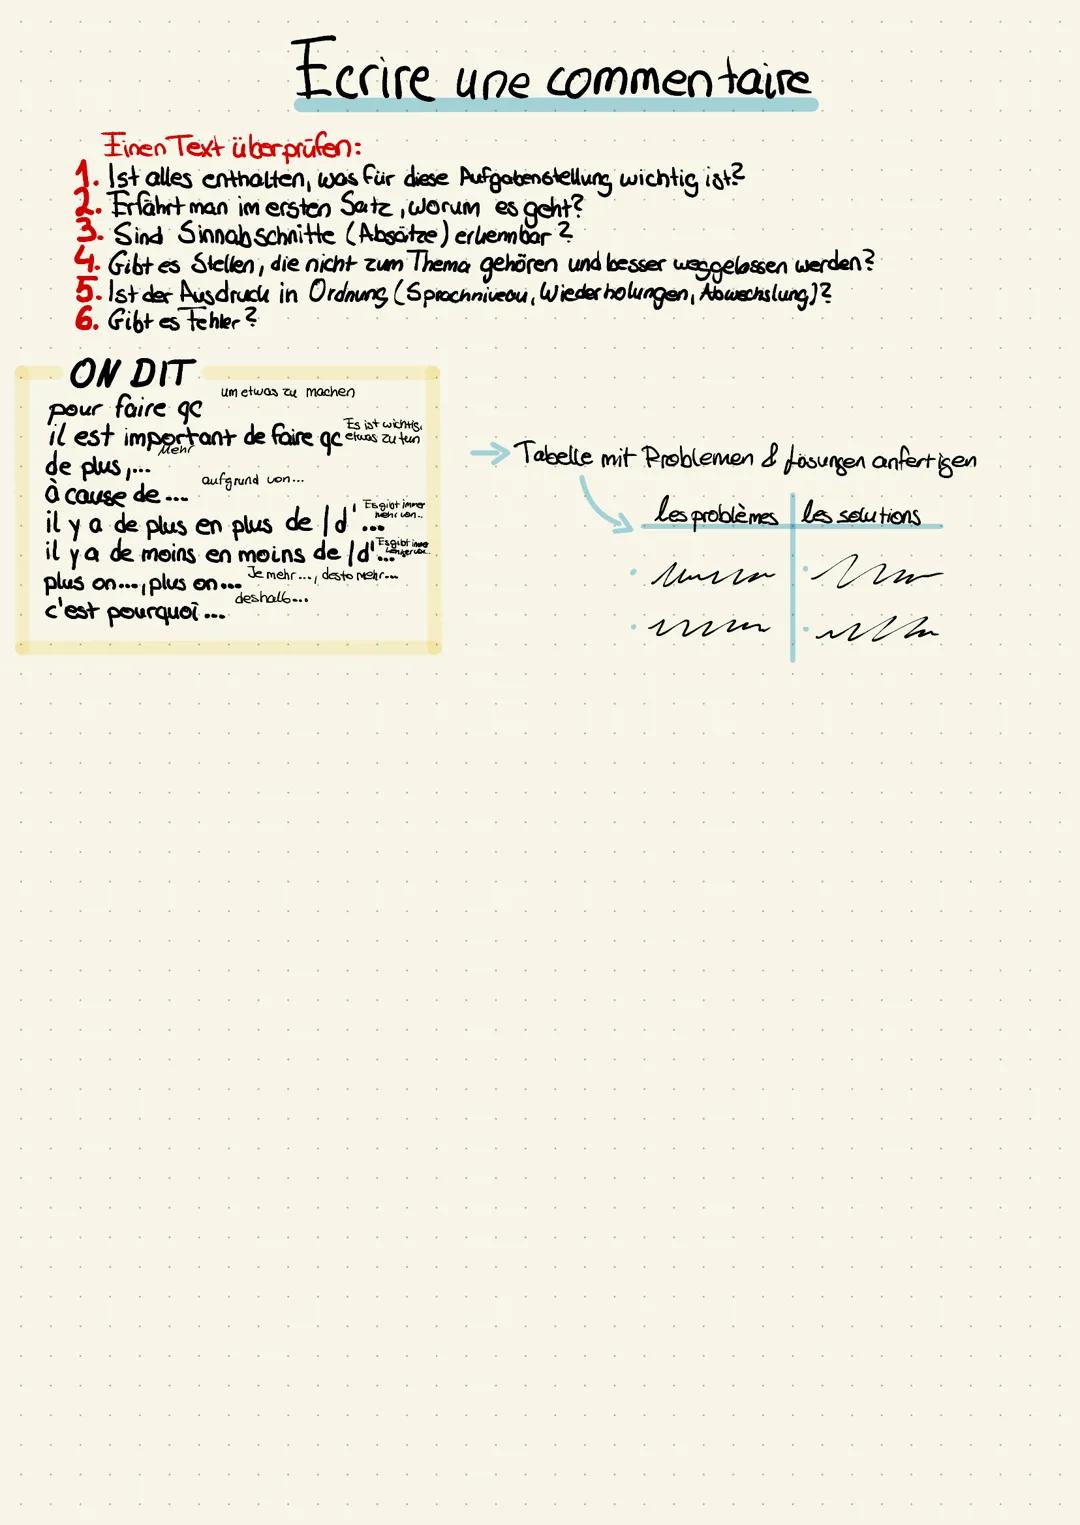 Ecrire une commentaire
Einen Text überprüfen:
1. Ist alles enthalten, was für diese Aufgabenstellung wichtig ist?
2. Erfährt man im ersten Satz, worum es geht?
3. Sind Sinnabschnitte (Absätze) erkennbar?
4. Gibt es Stellen, die nicht zum Thema gehören und besser weggelassen werden?
5. Ist der Ausdruck in Ordnung (Sprachniveau, Wiederholungen, Abwechslung)?
6. Gibt es Fehler?
ON DIT
um etwas zu machen
pour faire qc
il est important de faire qc
Es ist wichtig,
etwas zu tun
Mehr
de plus,...
aufgrund von...
à cause de...
Es gibt immer
mehr von...
il y a de plus en plus de /d'...
Es gibt immer
il y a de moins en moins de /d'...
plus on..., plus on... Je mehr..., desto mehr...
deshalb...
c'est pourquoi...
→ Tabelle mit Problemen & Lösungen anfertigen
les problèmes les solutions